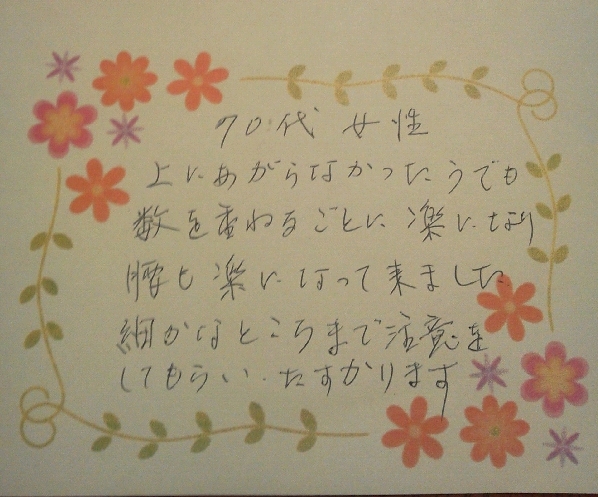 70代 女性
上にあがらなかったうでも
数を重ねるごとに 楽になり
腰も楽になって来ました
細かなところまで注意を
してもらい.たすかります